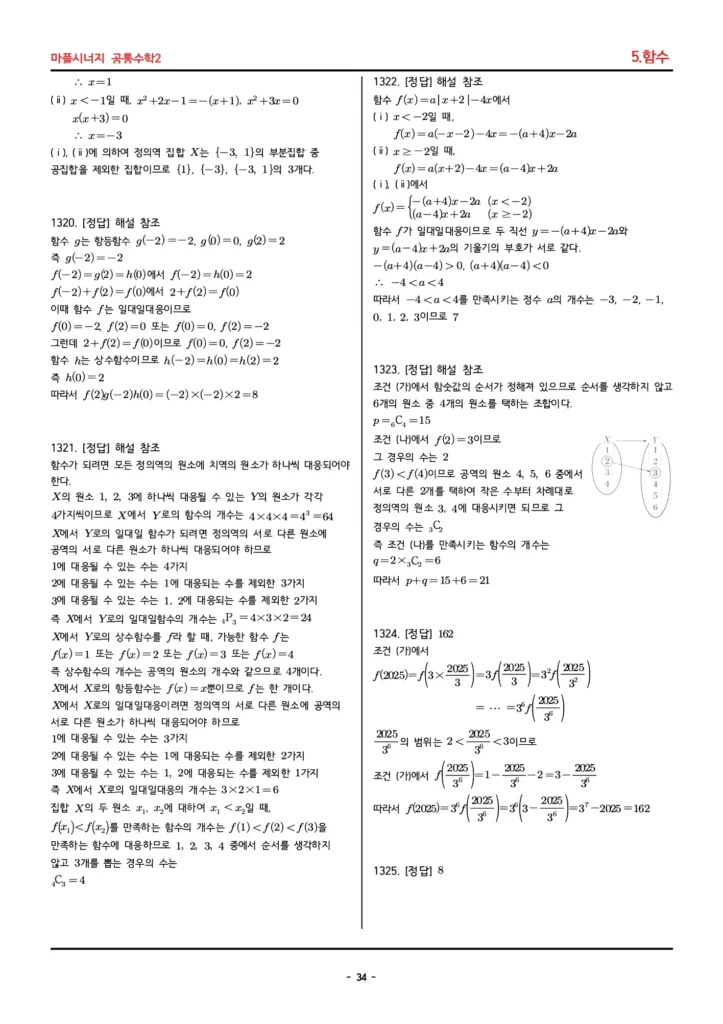 마플시너지 공통수학2
5.함수
∴ x=1
(ⅱ) x<-1일 때, x²+2x-1=-(x+1), x²+3x=0
x(x+3)=0
∴ x=-3
(ⅰ), (ⅱ)에 의하여 정의역 집합 X는 {-3, 1}의 부분집합 중
공집합을 제외한 집합이므로 {1}, {-3}, {-3, 1}의 3개다.
1320. [정답] 해설 참조
함수 g는 항등함수 g(-2)=-2, g(0)=0, g(2)=2
즉 g(-2)=-2
f(-2)=g(2)=h(0)에서 f(-2)=h(0)=2
f(-2)+f(2)=f(0)에서 2+f(2)=f(0)
이때 함수 f는 일대일대응이므로
f(0)=-2, f(2)=0 또는 f(0)=0, f(2)=-2
그런데 2+f(2)=f(0)이므로 f(0)=0, f(2)=-2
함수 h는 상수함수이므로 h(-2)=h(0)=h(2)=2
즉 h(0)=2
따라서 f(2)g(-2)h(0)=(-2)×(-2)×2=8
1321. [정답] 해설 참조
함수가 되려면 모든 정의역의 원소에 치역의 원소가 하나씩 대응되어야
한다.
X의 원소 1, 2, 3에 하나씩 대응될 수 있는 Y의 원소가 각각
4가지씩이므로 X에서 Y로의 함수의 개수는 4×4×4=4³=64
X에서 Y로의 일대일 함수가 되려면 정의역의 서로 다른 원소에
공역의 서로 다른 원소가 하나씩 대응되어야 하므로
1에 대응될 수 있는 수는 4가지
2에 대응될 수 있는 수는 1에 대응되는 수를 제외한 3가지
3에 대응될 수 있는 수는 1, 2에 대응되는 수를 제외한 2가지
즉 X에서 Y로의 일대일함수의 개수는 ₄P₃=4×3×2=24
X에서 Y로의 상수함수를 f라 할 때, 가능한 함수 f는
f(x)=1 또는 f(x)=2 또는 f(x)=3 또는 f(x)=4
즉 상수함수의 개수는 공역의 원소의 개수와 같으므로 4개이다.
X에서 X로의 항등함수는 f(x)=x뿐이므로 f는 한 개이다.
X에서 X로의 일대일대응이려면 정의역의 서로 다른 원소에 공역의
서로 다른 원소가 하나씩 대응되어야 하므로
1에 대응될 수 있는 수는 3가지
2에 대응될 수 있는 수는 1에 대응되는 수를 제외한 2가지
3에 대응될 수 있는 수는 1, 2에 대응되는 수를 제외한 1가지
즉 X에서 X로의 일대일대응의 개수는 3×2×1=6
집합 X의 두 원소 x₁, x₂에 대하여 x₁<x₂일 때,
f(x₁)<f(x₂)를 만족하는 함수의 개수는 f(1)<f(2)<f(3)을
만족하는 함수에 대응하므로 1, 2, 3, 4 중에서 순서를 생각하지
않고 3개를 뽑는 경우의 수는
₄C₃=4
1322. [정답] 해설 참조
함수 f(x)=a|x+2|-4x에서
(ⅰ) x<-2일 때,
f(x)=a(-x-2)-4x=-(a+4)x-2a
(ⅱ) x≥-2일 때,
f(x)=a(x+2)-4x=(a-4)x+2a
(ⅰ), (ⅱ)에서
f(x)={-(a+4)x-2a (x<-2)
(a-4)x+2a (x≥-2)
함수 f가 일대일대응이므로 두 직선 y=-(a+4)x-2a와
y=(a-4)x+2a의 기울기의 부호가 서로 같다.
-(a+4)(a-4)>0, (a+4)(a-4)<0
∴ -4<a<4
따라서 -4<a<4를 만족시키는 정수 a의 개수는 -3, -2, -1,
0, 1, 2, 3이므로 7
1323. [정답] 해설 참조
조건 (가)에서 함숫값의 순서가 정해져 있으므로 순서를 생각하지 않고
6개의 원소 중 4개의 원소를 택하는 조합이다.
p=₆C₄=15
조건 (나)에서 f(2)=3이므로
그 경우의 수는 2
f(3)<f(4)이므로 공역의 원소 4, 5, 6 중에서
서로 다른 2개를 택하여 작은 수부터 차례대로
정의역의 원소 3, 4에 대응시키면 되므로 그
경우의 수는 ₃C₂
즉 조건 (나)를 만족시키는 함수의 개수는
q=2×₃C₂=6
따라서 p+q=15+6=21
X Y
1 1
2 2
3 3
4 4
5
6
1324. [정답] 162
조건 (가)에서
f(2025)=f(3×2025/3)=3f(2025/3)=3²f(2025/3²)
= ⋯ =3⁶f(2025/3⁶)
2025/3⁶의 범위는 2<2025/3⁶<3이므로
조건 (가)에서 f(2025/3⁶)=1-2025/3⁶-2=3-2025/3⁶
따라서 f(2025)=3⁶f(2025/3⁶)=3⁶(3-2025/3⁶)=3⁷-2025=162
1325. [정답] 8
- 34 -